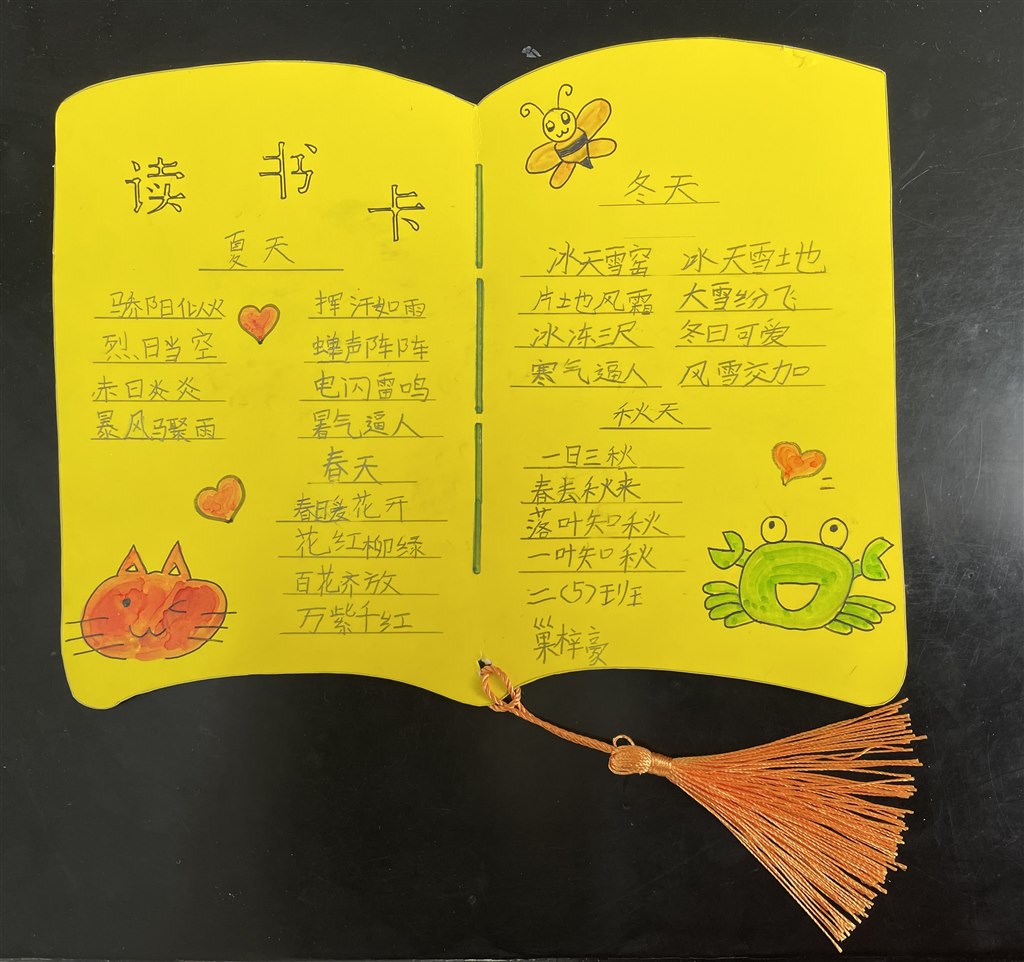 读书卡
夏天
骄阳似火 挥汗如雨
烈日当空 蝉声阵阵
赤日炎炎 电闪雷鸣
暴风骤雨 暑气逼人
春天
春日暖花开
花红柳绿
百花齐放
万紫千红
冬天
冰天雪窑 冰天雪土也
片土也风霜 大雪纷飞
冰冻三尺 冬日可爱
寒气逼人 风雪交加
秋天
一日三秋
春去秋来
落叶知秋
一叶知秋
二(5)班
巢梓豪